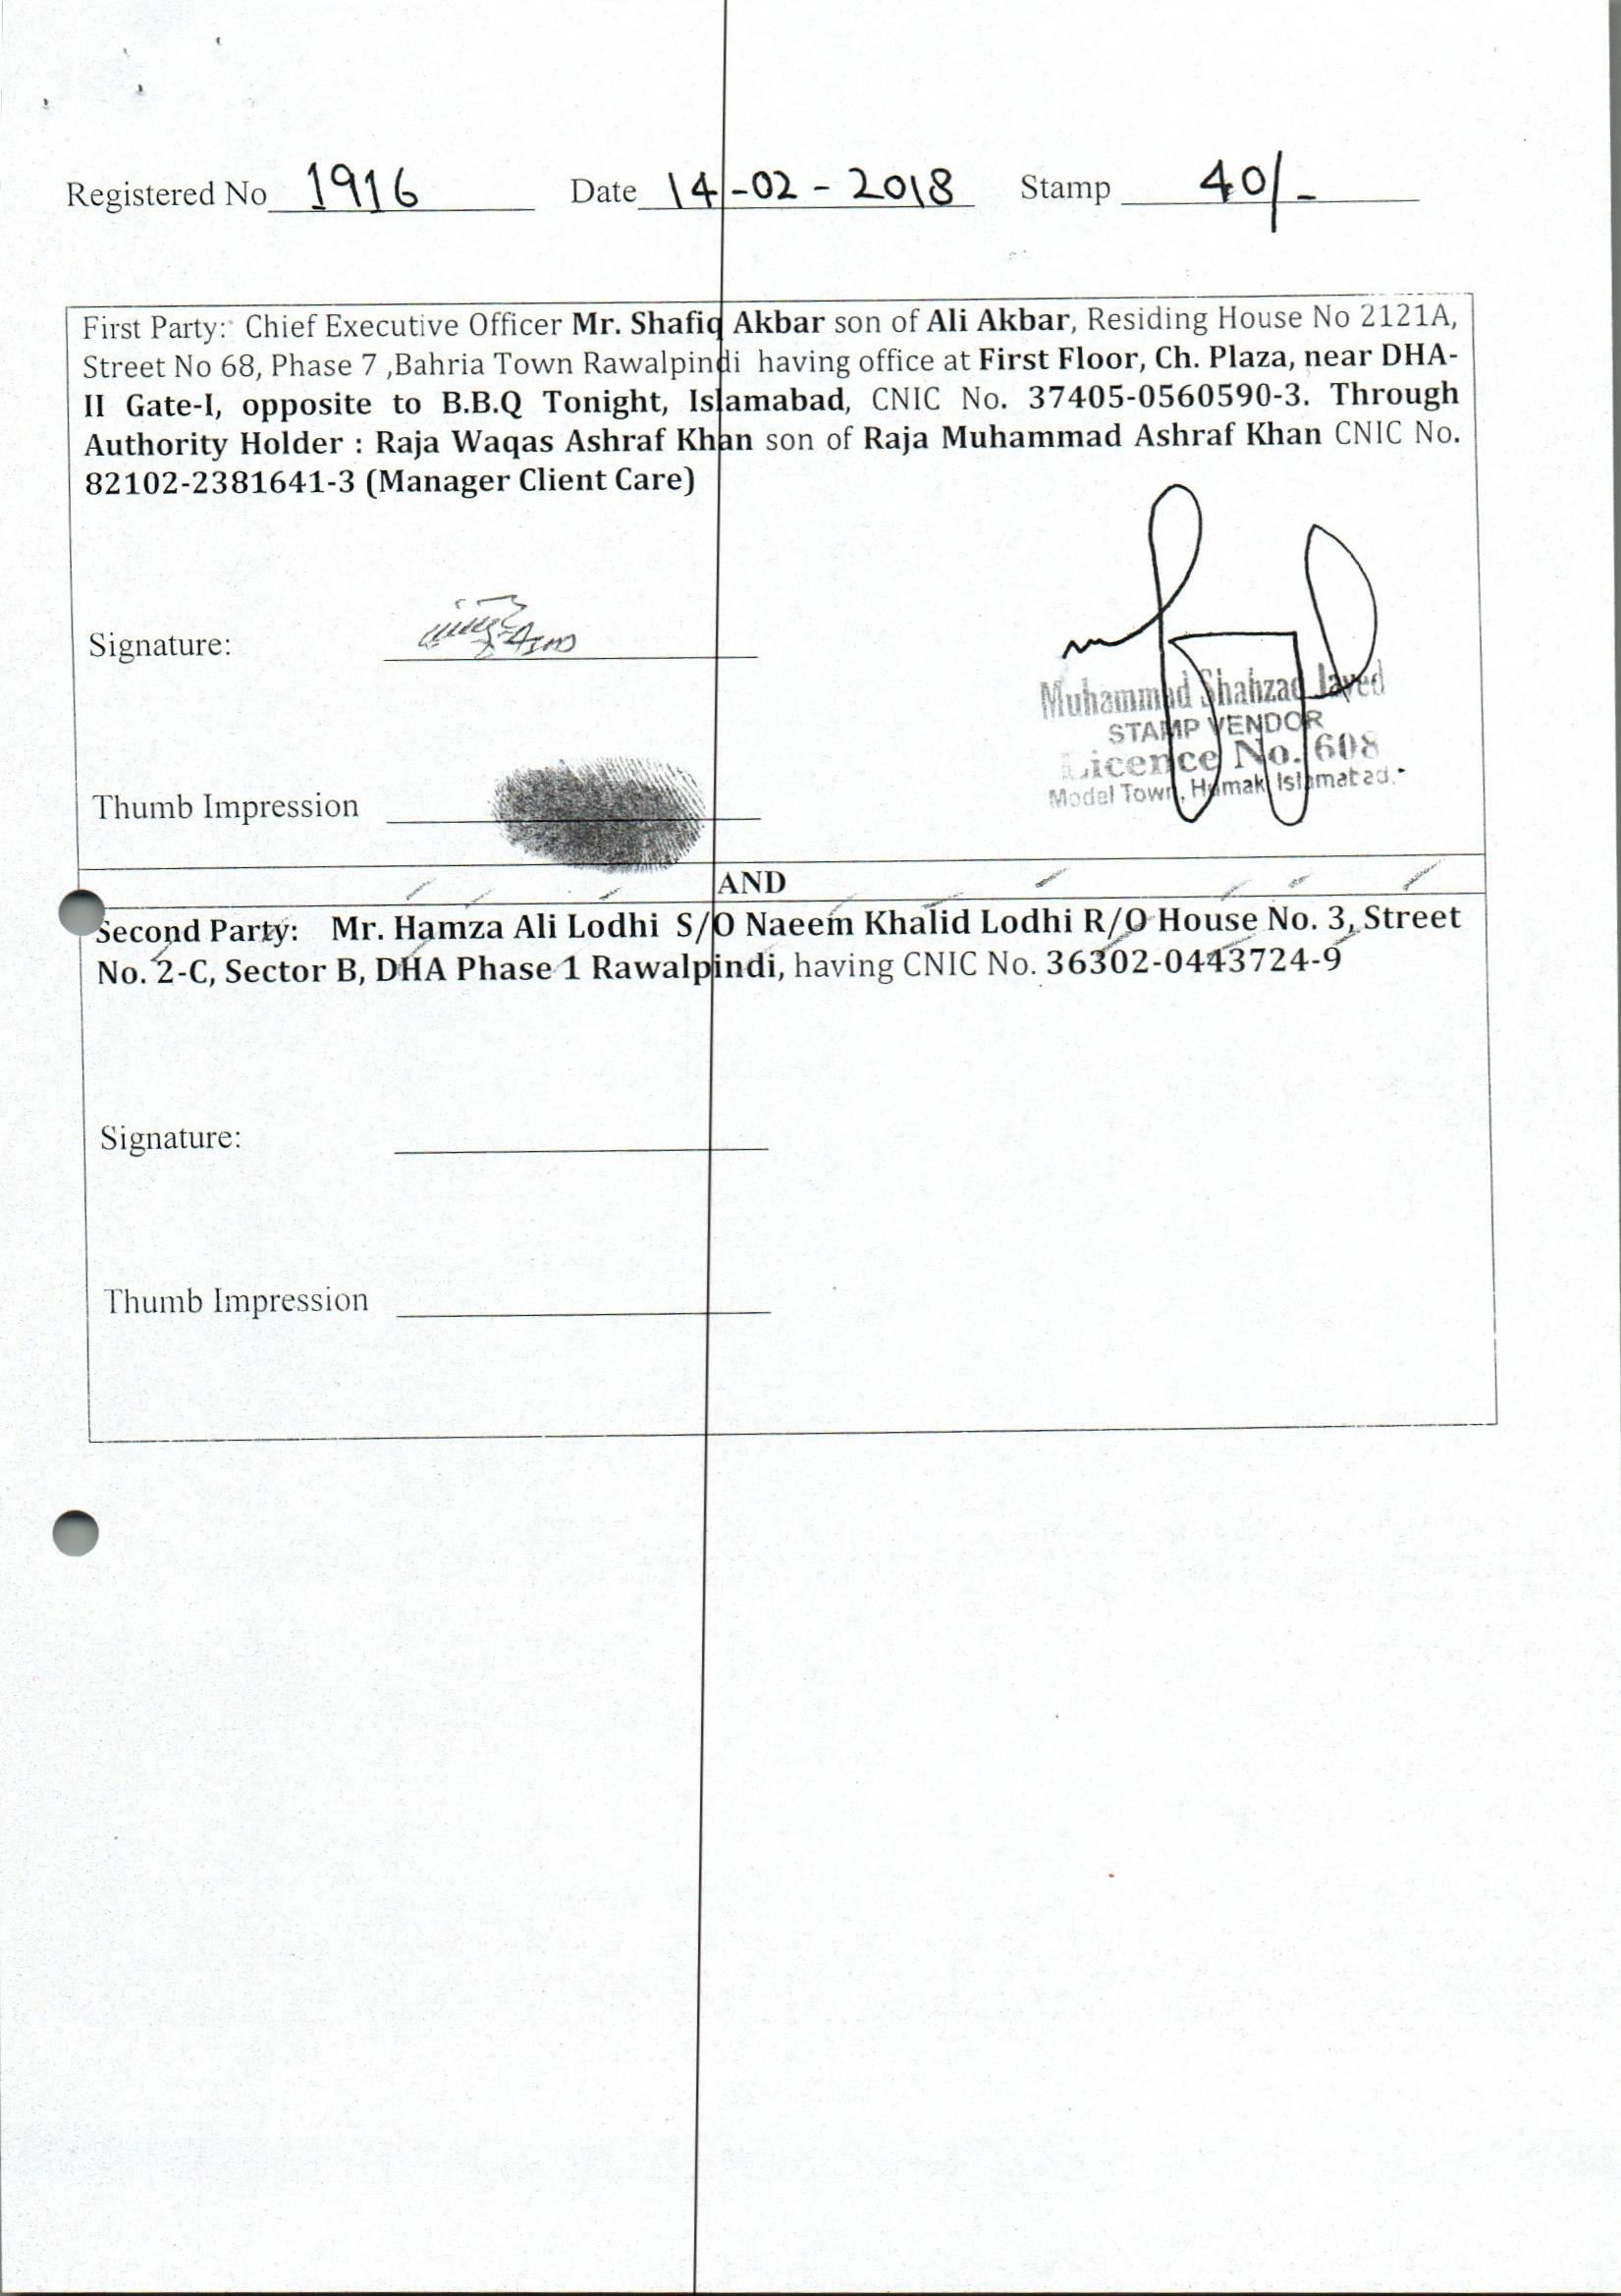 Registered No 1916 Date 14-02-2018 Stamp 40/-
First Party: Chief Executive Officer Mr. Shafiq Akbar son of Ali Akbar, Residing House No 2121A,
Street No 68, Phase 7 ,Bahria Town Rawalpindi having office at First Floor, Ch. Plaza, near DHA-
II Gate-I, opposite to B.B.Q Tonight, Islamabad, CNIC No. 37405-0560590-3. Through
Authority Holder : Raja Waqas Ashraf Khan son of Raja Muhammad Ashraf Khan CNIC No.
82102-2381641-3 (Manager Client Care)
Signature:
Muhammad Shahzad Javed
STAMP VENDOR
Licence No. 608
Model Town, Humak Islamabad.
Thumb Impression
AND
Second Party: Mr. Hamza Ali Lodhi S/O Naeem Khalid Lodhi R/O House No. 3, Street
No. 2-C, Sector B, DHA Phase 1 Rawalpindi, having CNIC No. 36302-0443724-9
Signature:
Thumb Impression